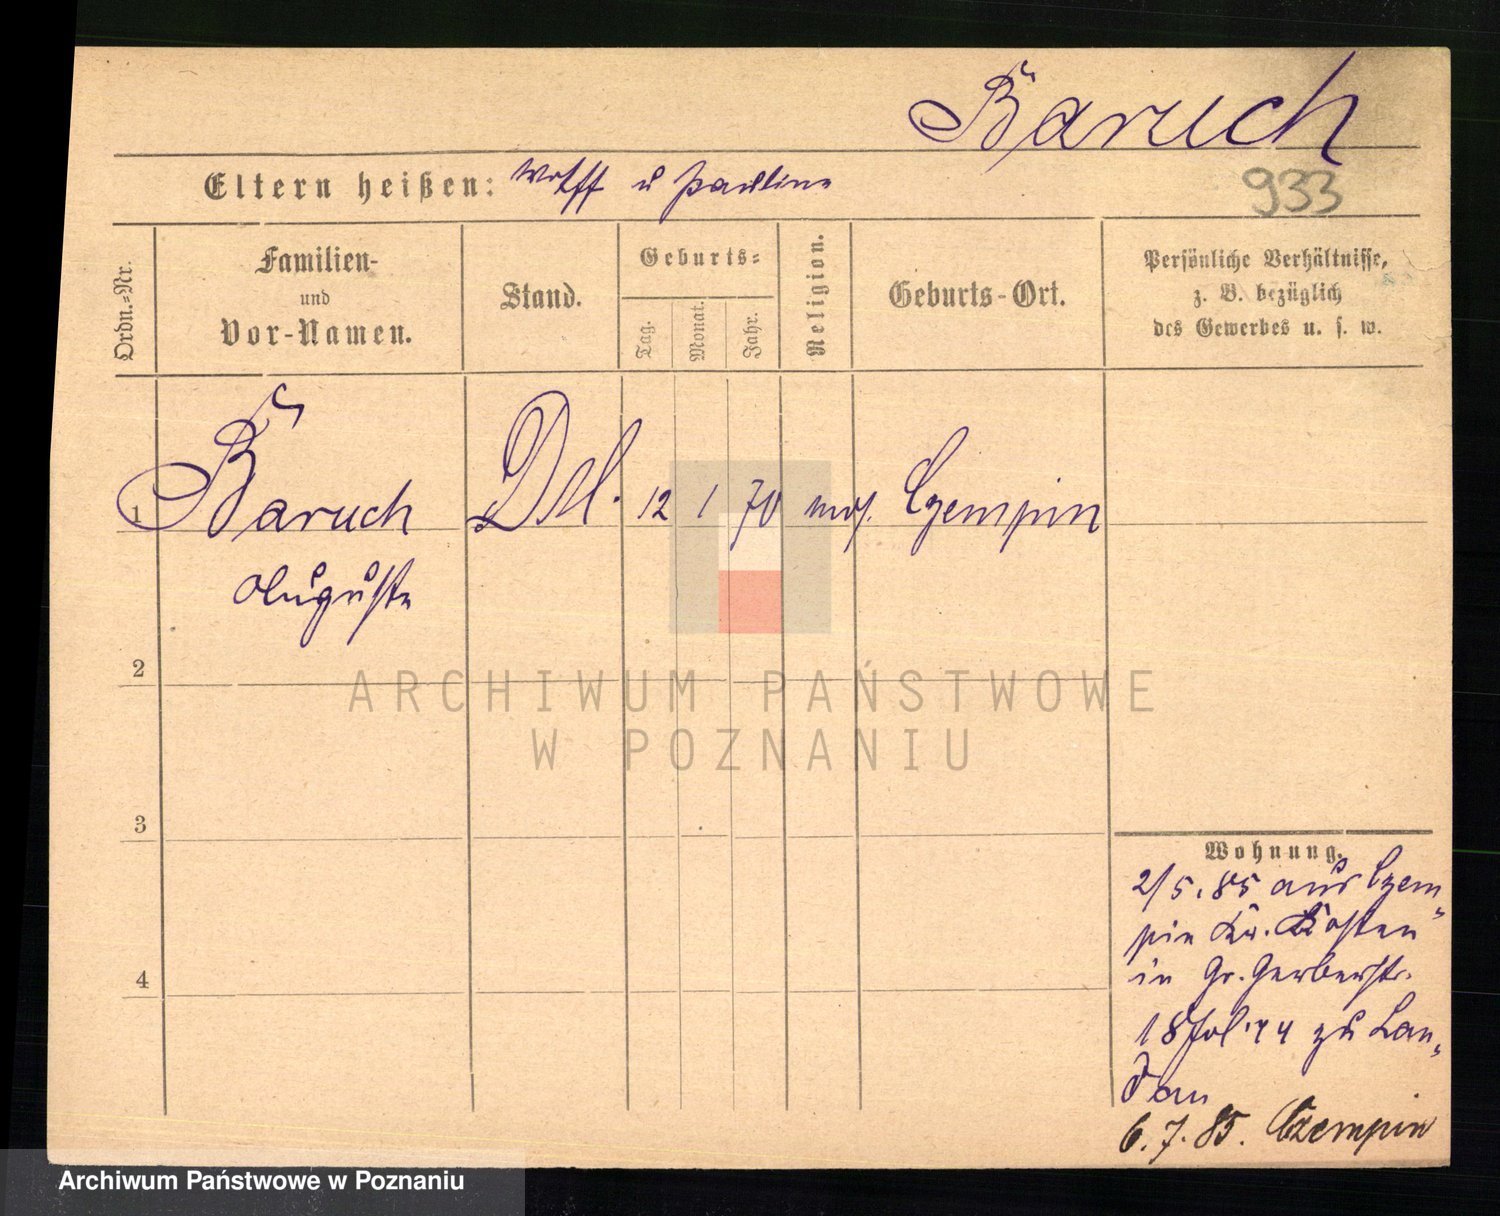 Baruch
Eltern heißen: Wolff u Pauline
933
Ordn.=Nr.
Familien-
und
Vor-Namen.
Stand.
Geburts=
Tag.
Monat.
Jahr.
Religion.
Geburts-Ort.
Persönliche Verhältnisse,
z. B. bezüglich
des Gewerbes u. s. w.
1 Baruch 12 1 70 mos. Czempin
Auguste
2
3
4
Wohnung.
2/5.85 aus Czem
pin Kr. Kosten
in Gr. Gerberstr.
18 zu Lan
dau
6.7.85. Czempin
ARCHIWUM PAŃSTWOWE
W POZNANIU
Archiwum Państwowe w Poznaniu